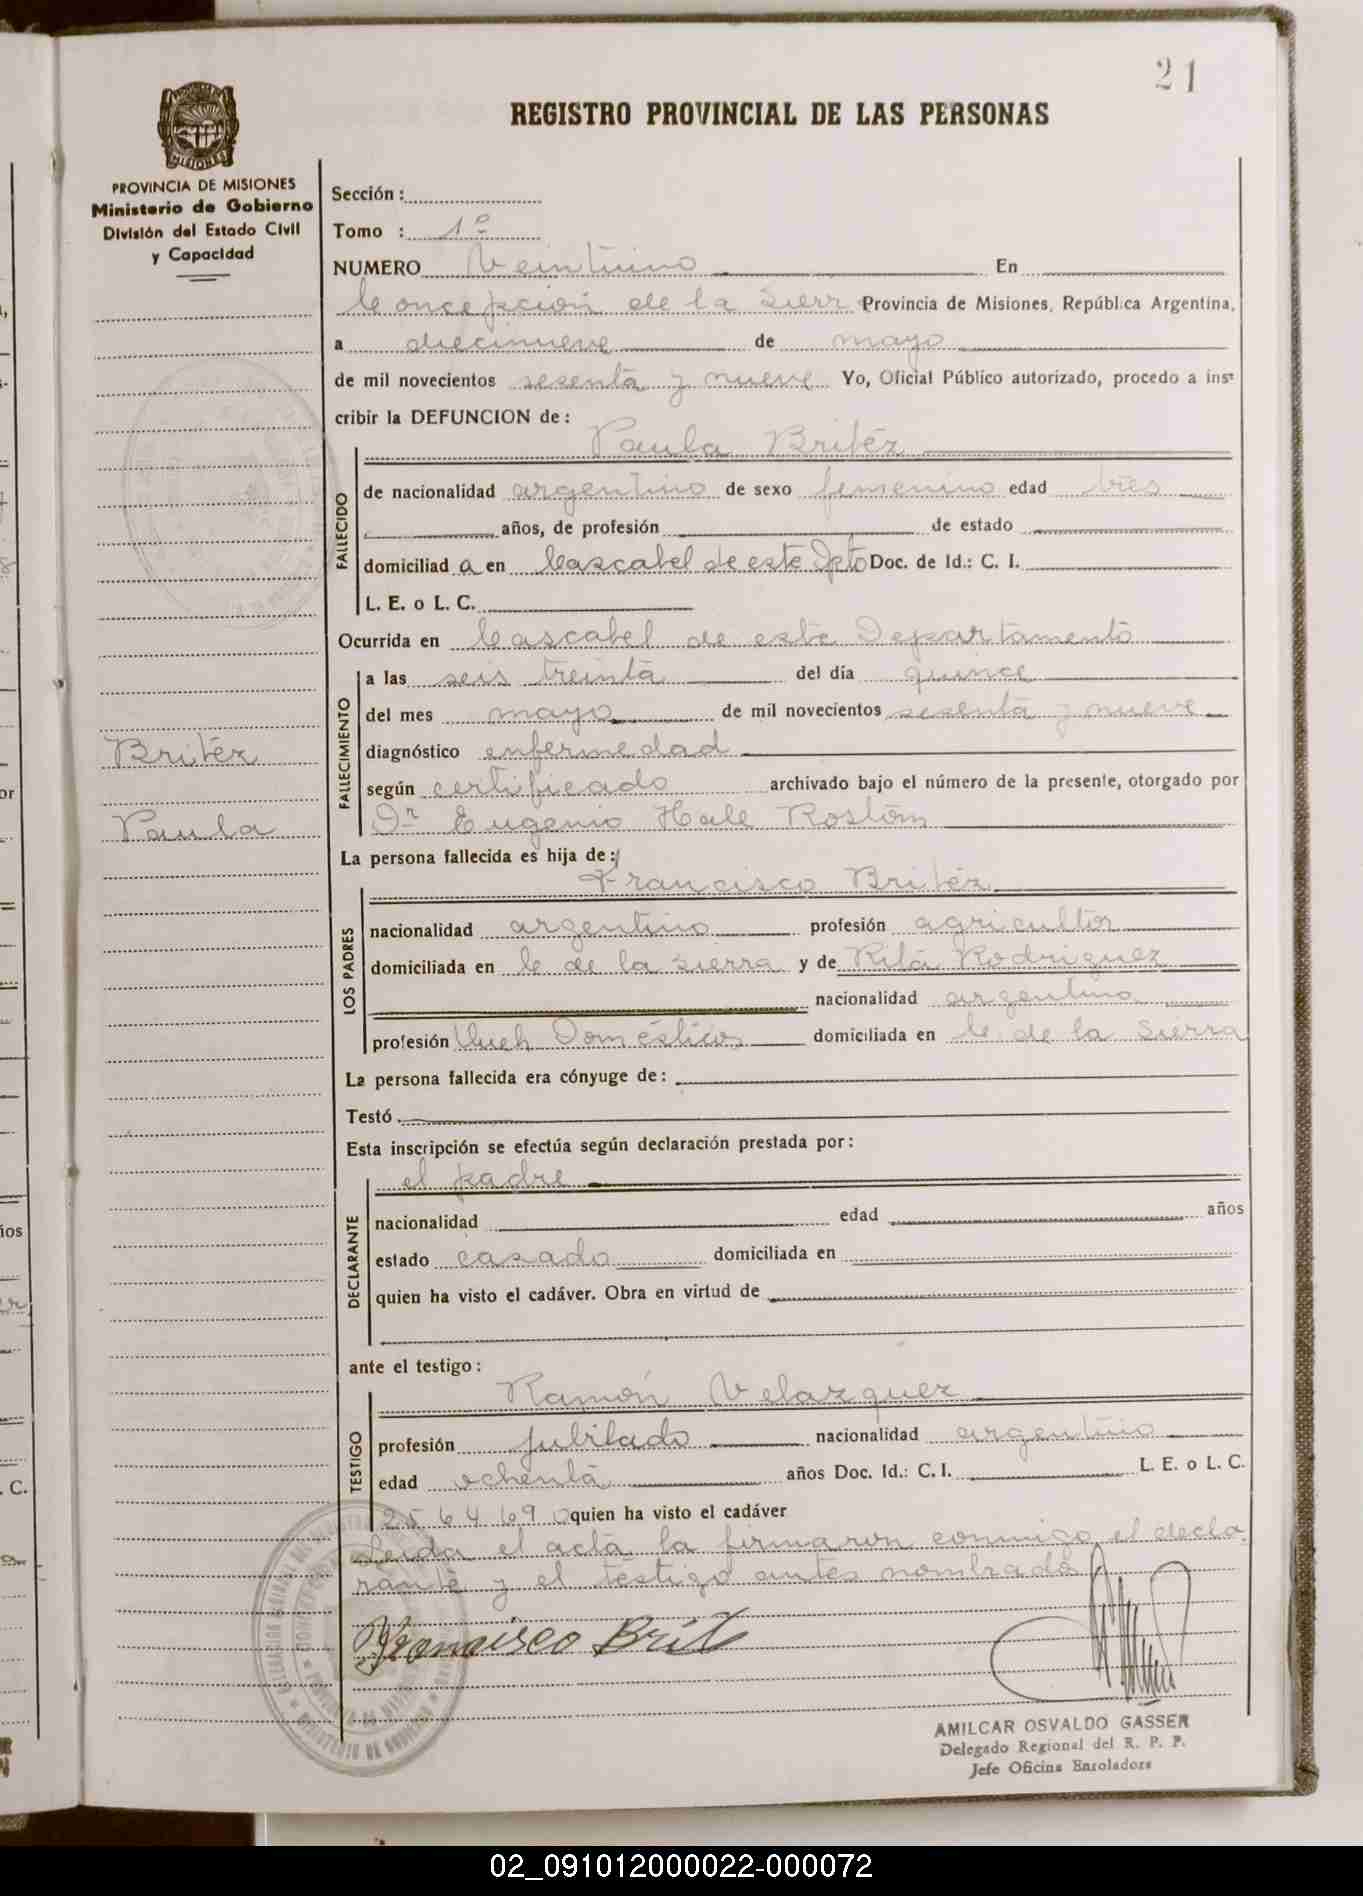 21
REGISTRO PROVINCIAL DE LAS PERSONAS
PROVINCIA DE MISIONES
Ministerio de Gobierno
División del Estado Civil
y Capacidad
Sección :
Tomo : 1º
NUMERO Veintiuno En
Concepción de la Sierra Provincia de Misiones, República Argentina,
a diecinueve de mayo
de mil novecientos sesenta y nueve Yo, Oficial Público autorizado, procedo a ins-
cribir la DEFUNCION de :
Paula Britéz
FALLECIDO
de nacionalidad argentino de sexo femenino edad tres
años, de profesión de estado
domiciliad a en Cascabel de este Dpto Doc. de Id.: C. I.
L. E. o L. C.
Ocurrida en Cascabel de este Departamento
FALLECIMIENTO
a las seis treinta del día quince
del mes mayo de mil novecientos sesenta y nueve
diagnóstico enfermedad
según certificado archivado bajo el número de la presente, otorgado por
Dr Eugenio Hale Rostom
Britéz
Paula
La persona fallecida es hija de :
Francisco Britéz
LOS PADRES
nacionalidad argentino profesión agricultor
domiciliada en C de la Sierra y de Rita Rodriguez
nacionalidad argentino
profesión Queh Domésticos domiciliada en C. de la Sierra
La persona fallecida era cónyuge de :
Testó
Esta inscripción se efectúa según declaración prestada por :
el padre
DECLARANTE
nacionalidad edad años
estado casado domiciliada en
quien ha visto el cadáver. Obra en virtud de
ante el testigo :
Ramón Velazquez
TESTIGO
profesión jubilado nacionalidad argentino
edad ochenta años Doc. Id.: C. I. L. E. o L. C.
2564690 quien ha visto el cadáver
Leida el acta la firmaron conmigo el decla
rante y el testigo antes nombrado
Francisco Brit
AMILCAR OSVALDO GASSER
Delegado Regional del R. P. P.
Jefe Oficina Enroladora
02_091012000022-000072